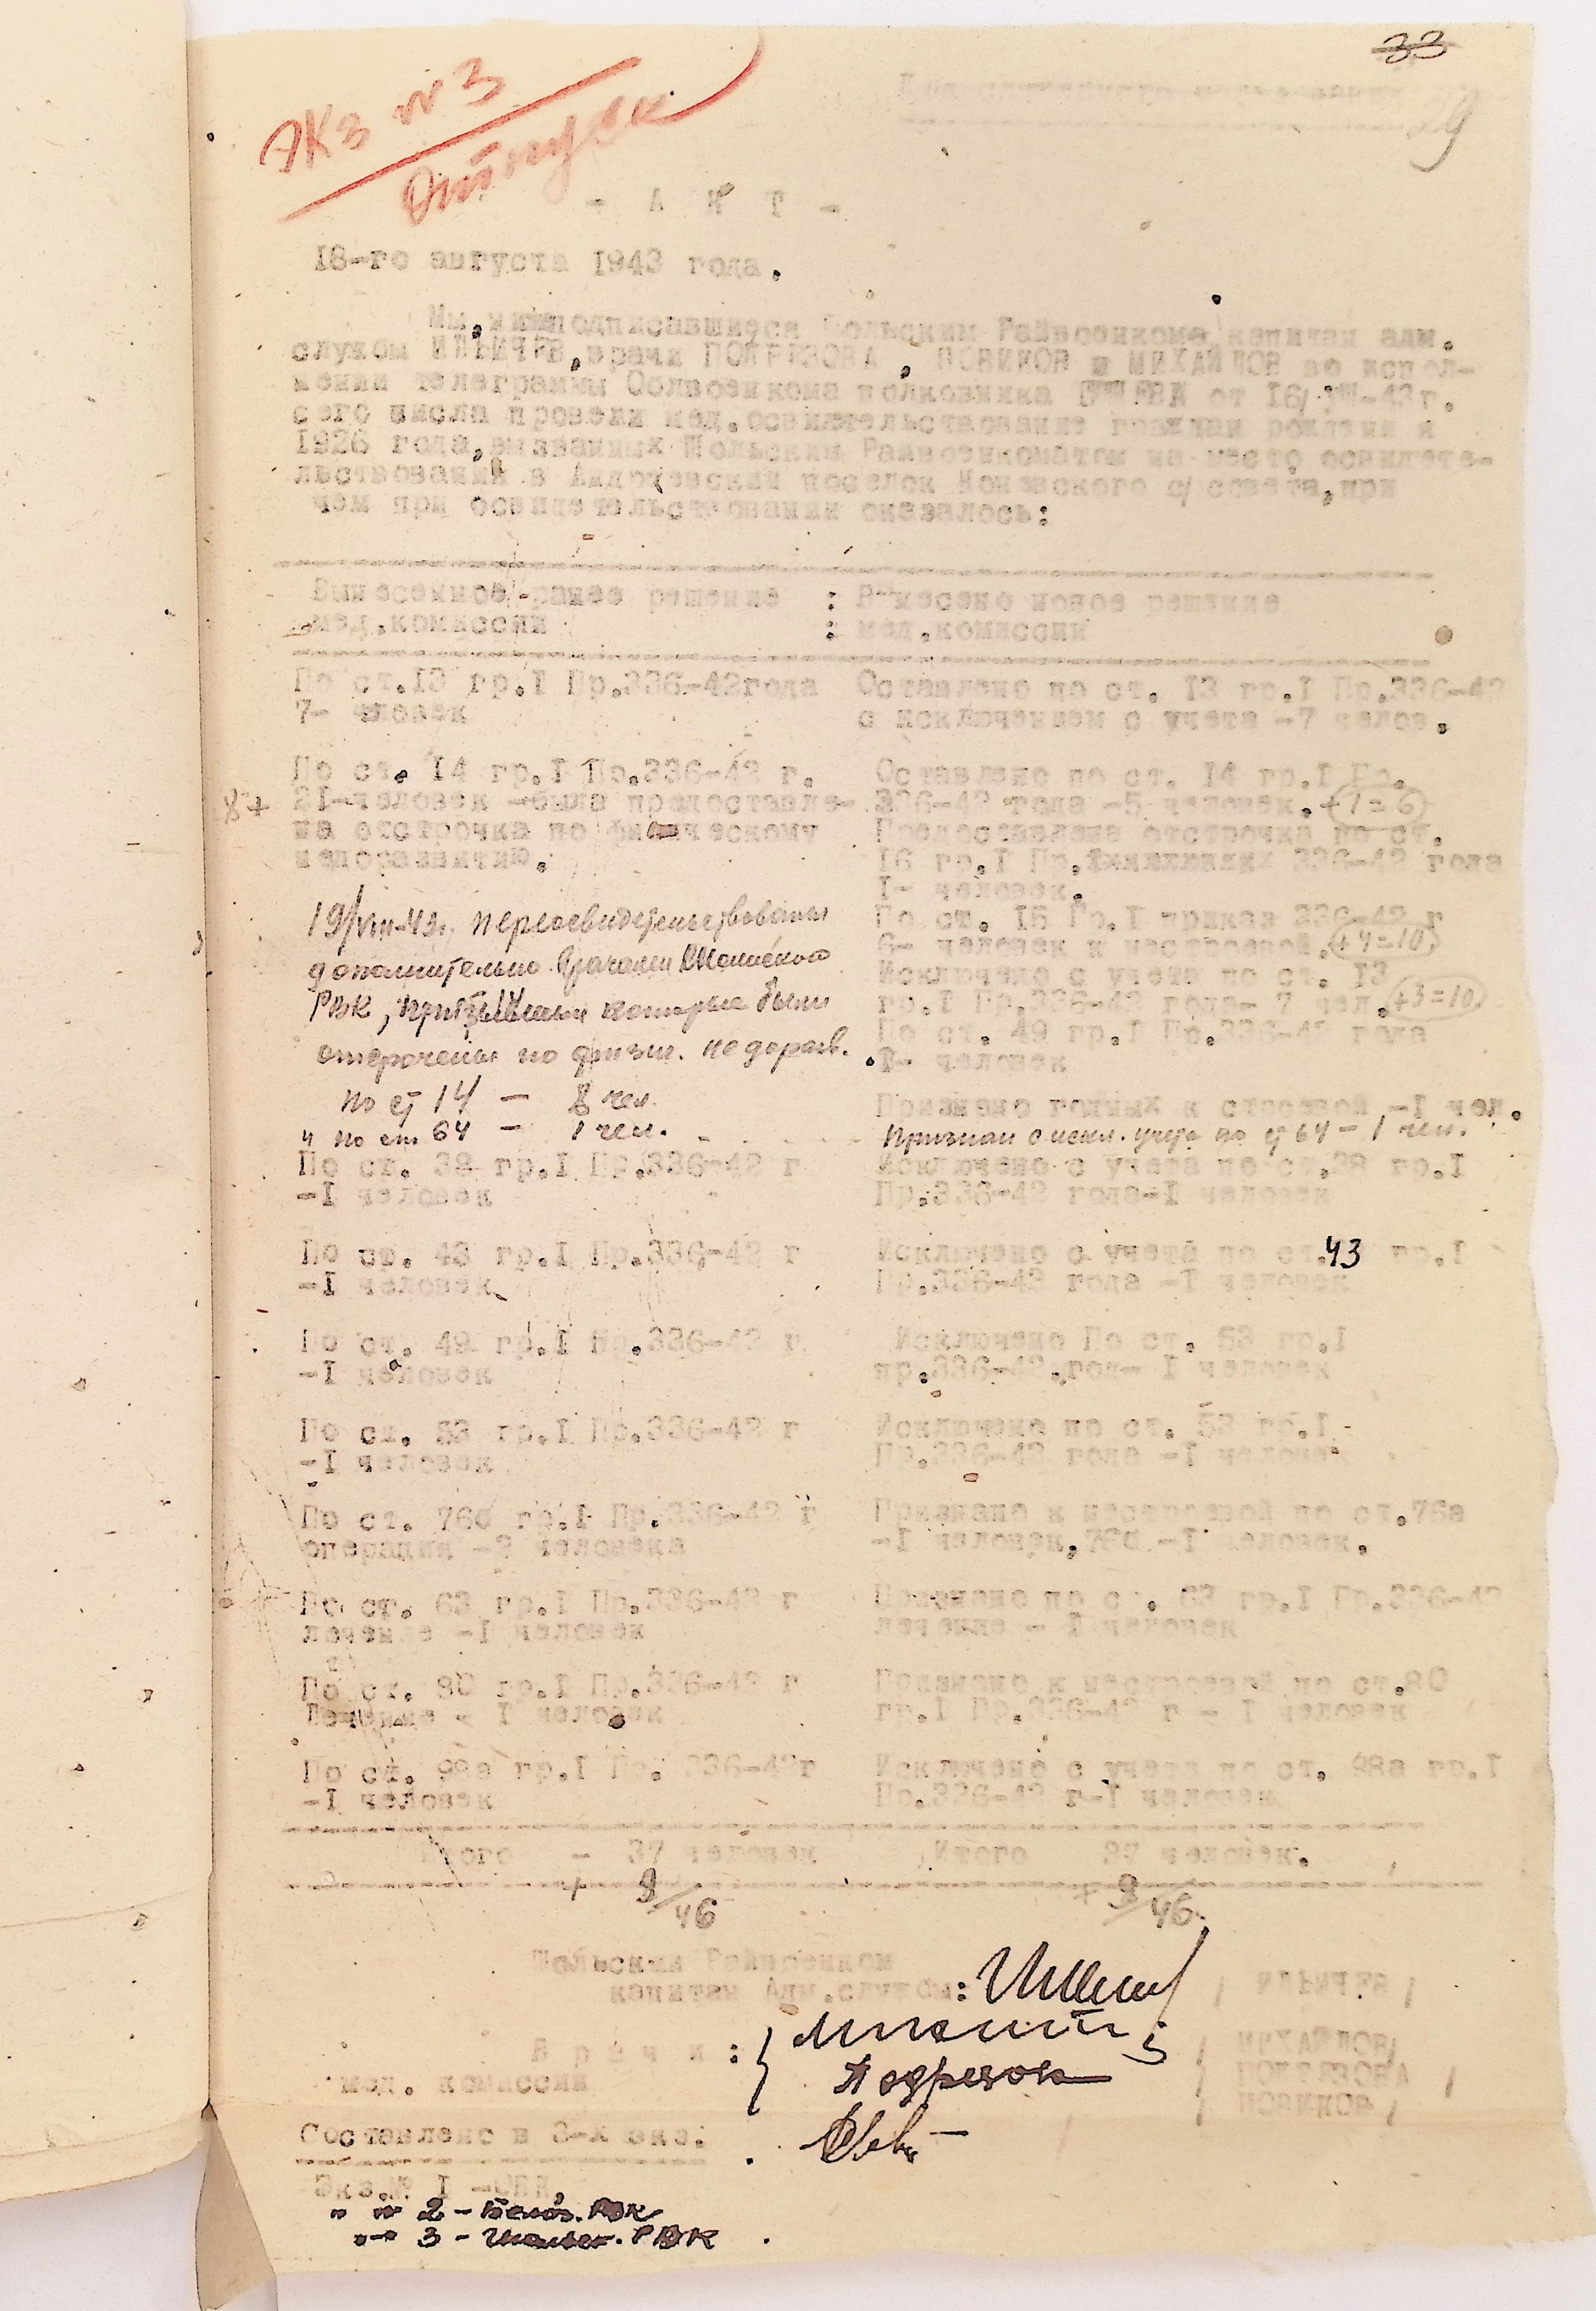 33
29
Экз № 3
Отпуск
- А К Т -
18-го августа 1943 года.
Мы, нижеподписавшиеся Шольским Райвоенкома, капитан адм.
службы ИЛЬИЧЕВ, врачи ПОДРЕЗОВА, НОВИКОВ и МИХАЙЛОВ во испол-
нении телеграммы Облвоенкома полковника от 16/VIII-43г.
сего числа провели мед.освидетельствование граждан рождения
1926 года, вызванных Шольским Райвоенкоматом на место освидете-
льствований в Андреевский поселок с/совета, при
чем при освидетельствовании оказалось:
Вынесенное ранее решение : Вынесено новое решение
мед.комиссии : мед.комиссии
По ст.13 гр.I Пр.336-42года Оставлено по ст. 13 гр.I Пр.336-42
7- человек с исключением с учета -7 челов.
По ст. 14 гр.I Пр.336-42 г. Оставлено по ст. 14 гр.I Пр.
8+ 21-человек -была предоставле- 336-42 года -5 человек. +1=6
на отсрочка по физическому Предоставлена отсрочка по ст.
недоразвитию. 16 гр.I Пр. 336-42 года
I- человек.
19/VIII-43г. переосвидетельствованы По ст. 15 Гр.I приказ 336-42 г
6- человек к нестроевой. +4=10
дополнительно врачами Шольского Исключено с учета по ст. 13
РВК, призывники которые были гр.I Пр.336-42 года- 7 чел. +3=10
По ст. 49 гр.I Пр.336-42 года
отсрочены по физич. недоразв. I- человек
по ст 14 - 8 чел. Признано годных к строевой -I чел.
" по ст. 64 - 1 чел. Признан с искл. учета по ст 64 - 1 чел.
По ст. 38 гр.I Пр.336-42 г Исключено с учета по ст.38 гр.I
-I человек Пр.336-42 года-I человек
По ст. 43 гр.I Пр.336-42 г Исключено с учета по ст.43 гр.I
-I человек Пр.336-42 года -I человек
По ст. 49 гр.I Пр.336-42 г Исключено По ст. 53 гр.I
-I человек пр.336-42.год- I человек
По ст. 53 гр.I Пр.336-42 г Исключено по ст. 53 гр.I
-I человек Пр.336-42 года -I человек
По ст. 76б гр.I Пр.336-42 г Признано к нестроевой по ст.76а
операция -2 человека -I человек,76б -I человек.
По ст. 63 гр.I Пр.336-42 г Признано по ст. 63 гр.I Пр.336-42
лечение -I человек лечение - I человек
По ст. 80 гр.I Пр.336-42 г Признано к нестроевой по ст.80
Лечение - I человек гр.I Пр.336-4 г - I человек
По ст. 98а гр.I Пр. 336-42г Исключено с учета по ст. 98а гр.I
-I человек Пр.336-42 г-I человек
Итого - 37 человек Итого 37 человек.
+ 9/46 + 9/46
Шольский Райвоенком
капитан Адм.службы: / ИЛЬИЧЕВ /
В р а ч и : / МИХАЙЛОВ/
мед. комиссии Подрезов / ПОДРЕЗОВА /
/ НОВИКОВ /
Составлено в 3-х экз.
Экз.№ I -ОВК,
" " 2 - Белоз. РВК
" " 3 - Шольск. РВК